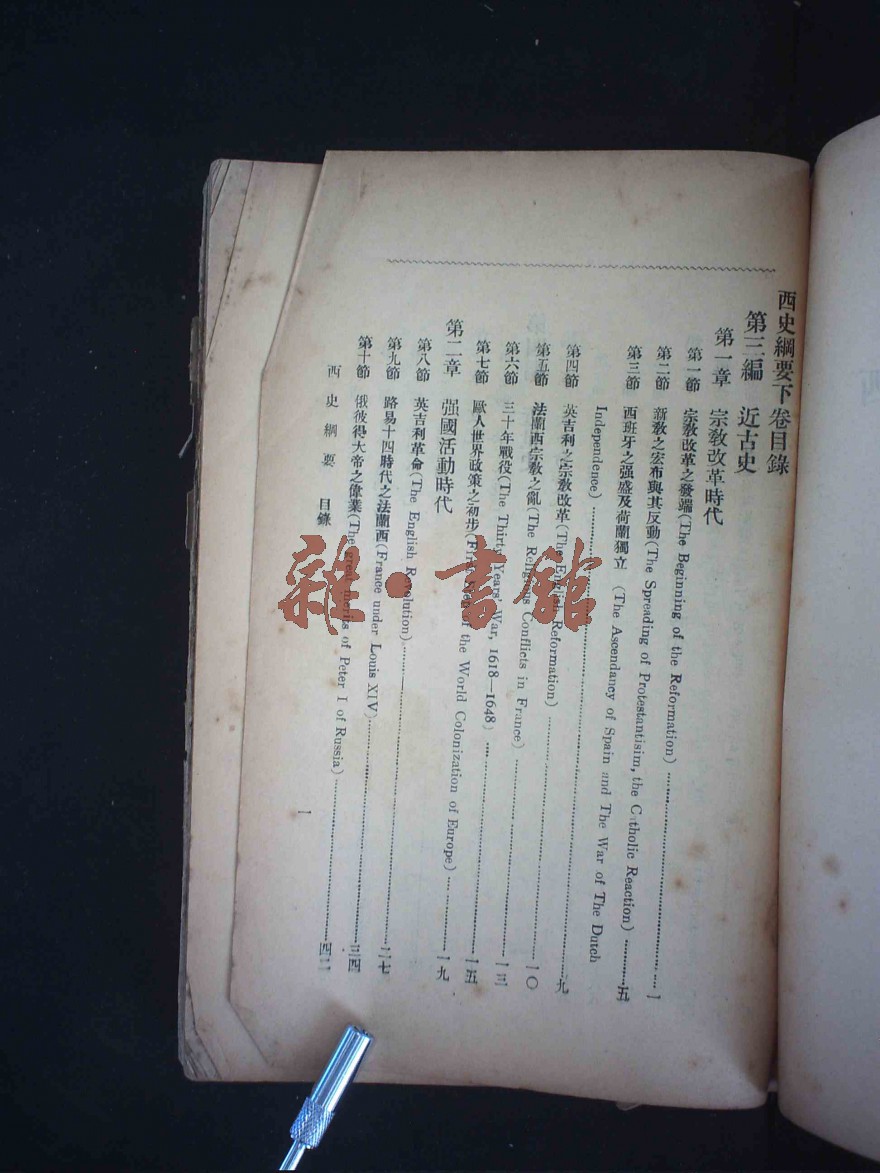 西史綱要下卷目錄
第三編 近古史
第一章 宗教改革時代
第一節 宗教改革之發端(The Beginning of the Reformation)……一
第二節 新教之宏布與其反動(The Spreading of Protestantisim, the Catholic Reaction)……五
第三節 西班牙之强盛及荷蘭獨立 (The Ascendancy of Spain and The War of The Dutch
Independence)……九
第四節 英吉利之宗教改革(The English Reformation)……一〇
第五節 法蘭西宗教之亂(The Religious Conflicts in France)……一三
第六節 三十年戰役(The Thirty Years' War, 1618—1648)……一五
第七節 歐人世界政策之初步(First Step of the World Colonization of Europe)……一九
第二章 强國活動時代
第八節 英吉利革命(The English Revolution)……二七
第九節 路易十四時代之法蘭西(France under Louis XIV)……三四
第十節 俄彼得大帝之偉業(The great merits of Peter I of Russia)……四二
西史綱要 目錄
一
雜·書館